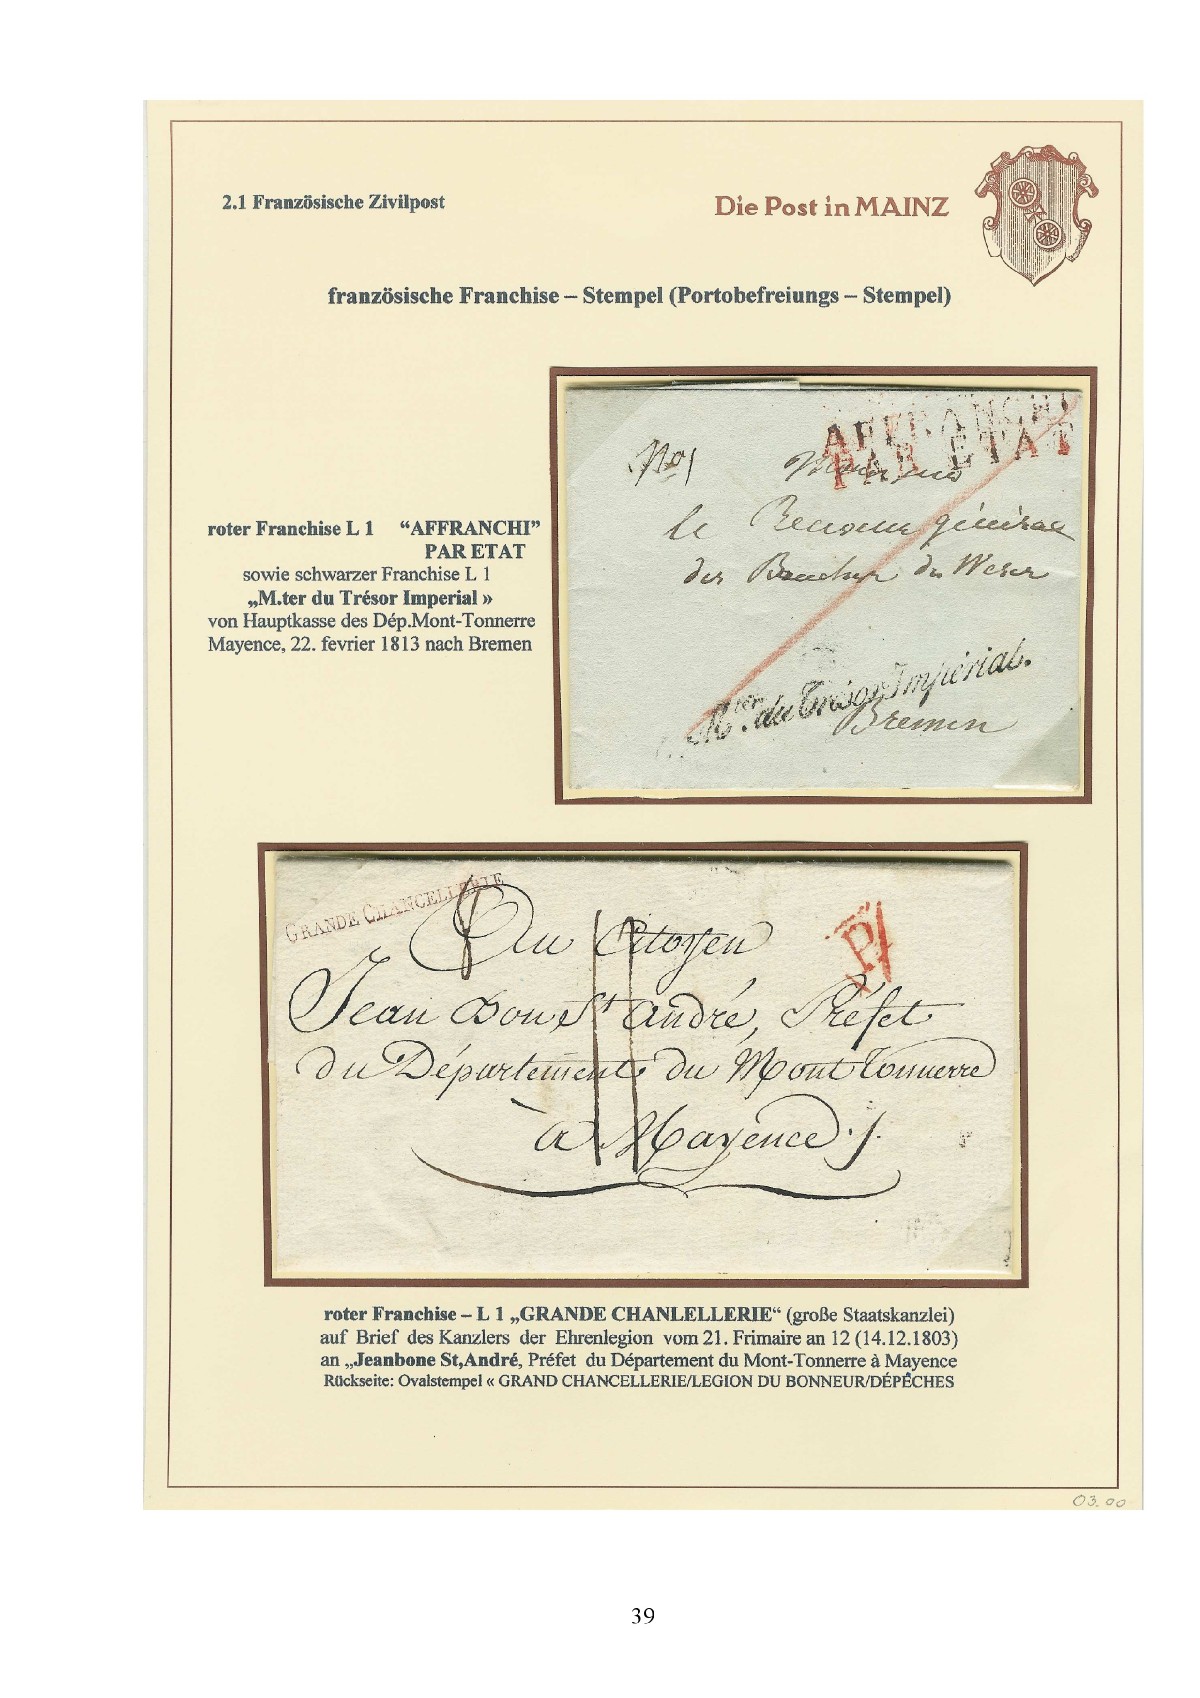 2.1 Französische Zivilpost
Die Post in MAINZ
französische Franchise – Stempel (Portobefreiungs – Stempel)
roter Franchise L 1 “AFFRANCHI”
PAR ETAT
sowie schwarzer Franchise L 1
„M.ter du Trésor Imperial »
von Hauptkasse des Dép.Mont-Tonnerre
Mayence, 22. fevrier 1813 nach Bremen
AFFRANCHI
PAR ETAT
No 1
Monsieur
le Receveur général
des Bouches du Weser
Mter. du Trésor Impérial.
Bremen
GRANDE CHANCELLERIE
Au Citoyen
P
Jean Bon St André, Préfet
du Département du Mont Tonnerre
à Mayence
roter Franchise – L 1 „GRANDE CHANLELLERIE“ (große Staatskanzlei)
auf Brief des Kanzlers der Ehrenlegion vom 21. Frimaire an 12 (14.12.1803)
an „Jeanbone St,André, Préfet du Département du Mont-Tonnerre à Mayence
Rückseite: Ovalstempel « GRAND CHANCELLERIE/LEGION DU BONNEUR/DÉPÊCHES
03.00
39